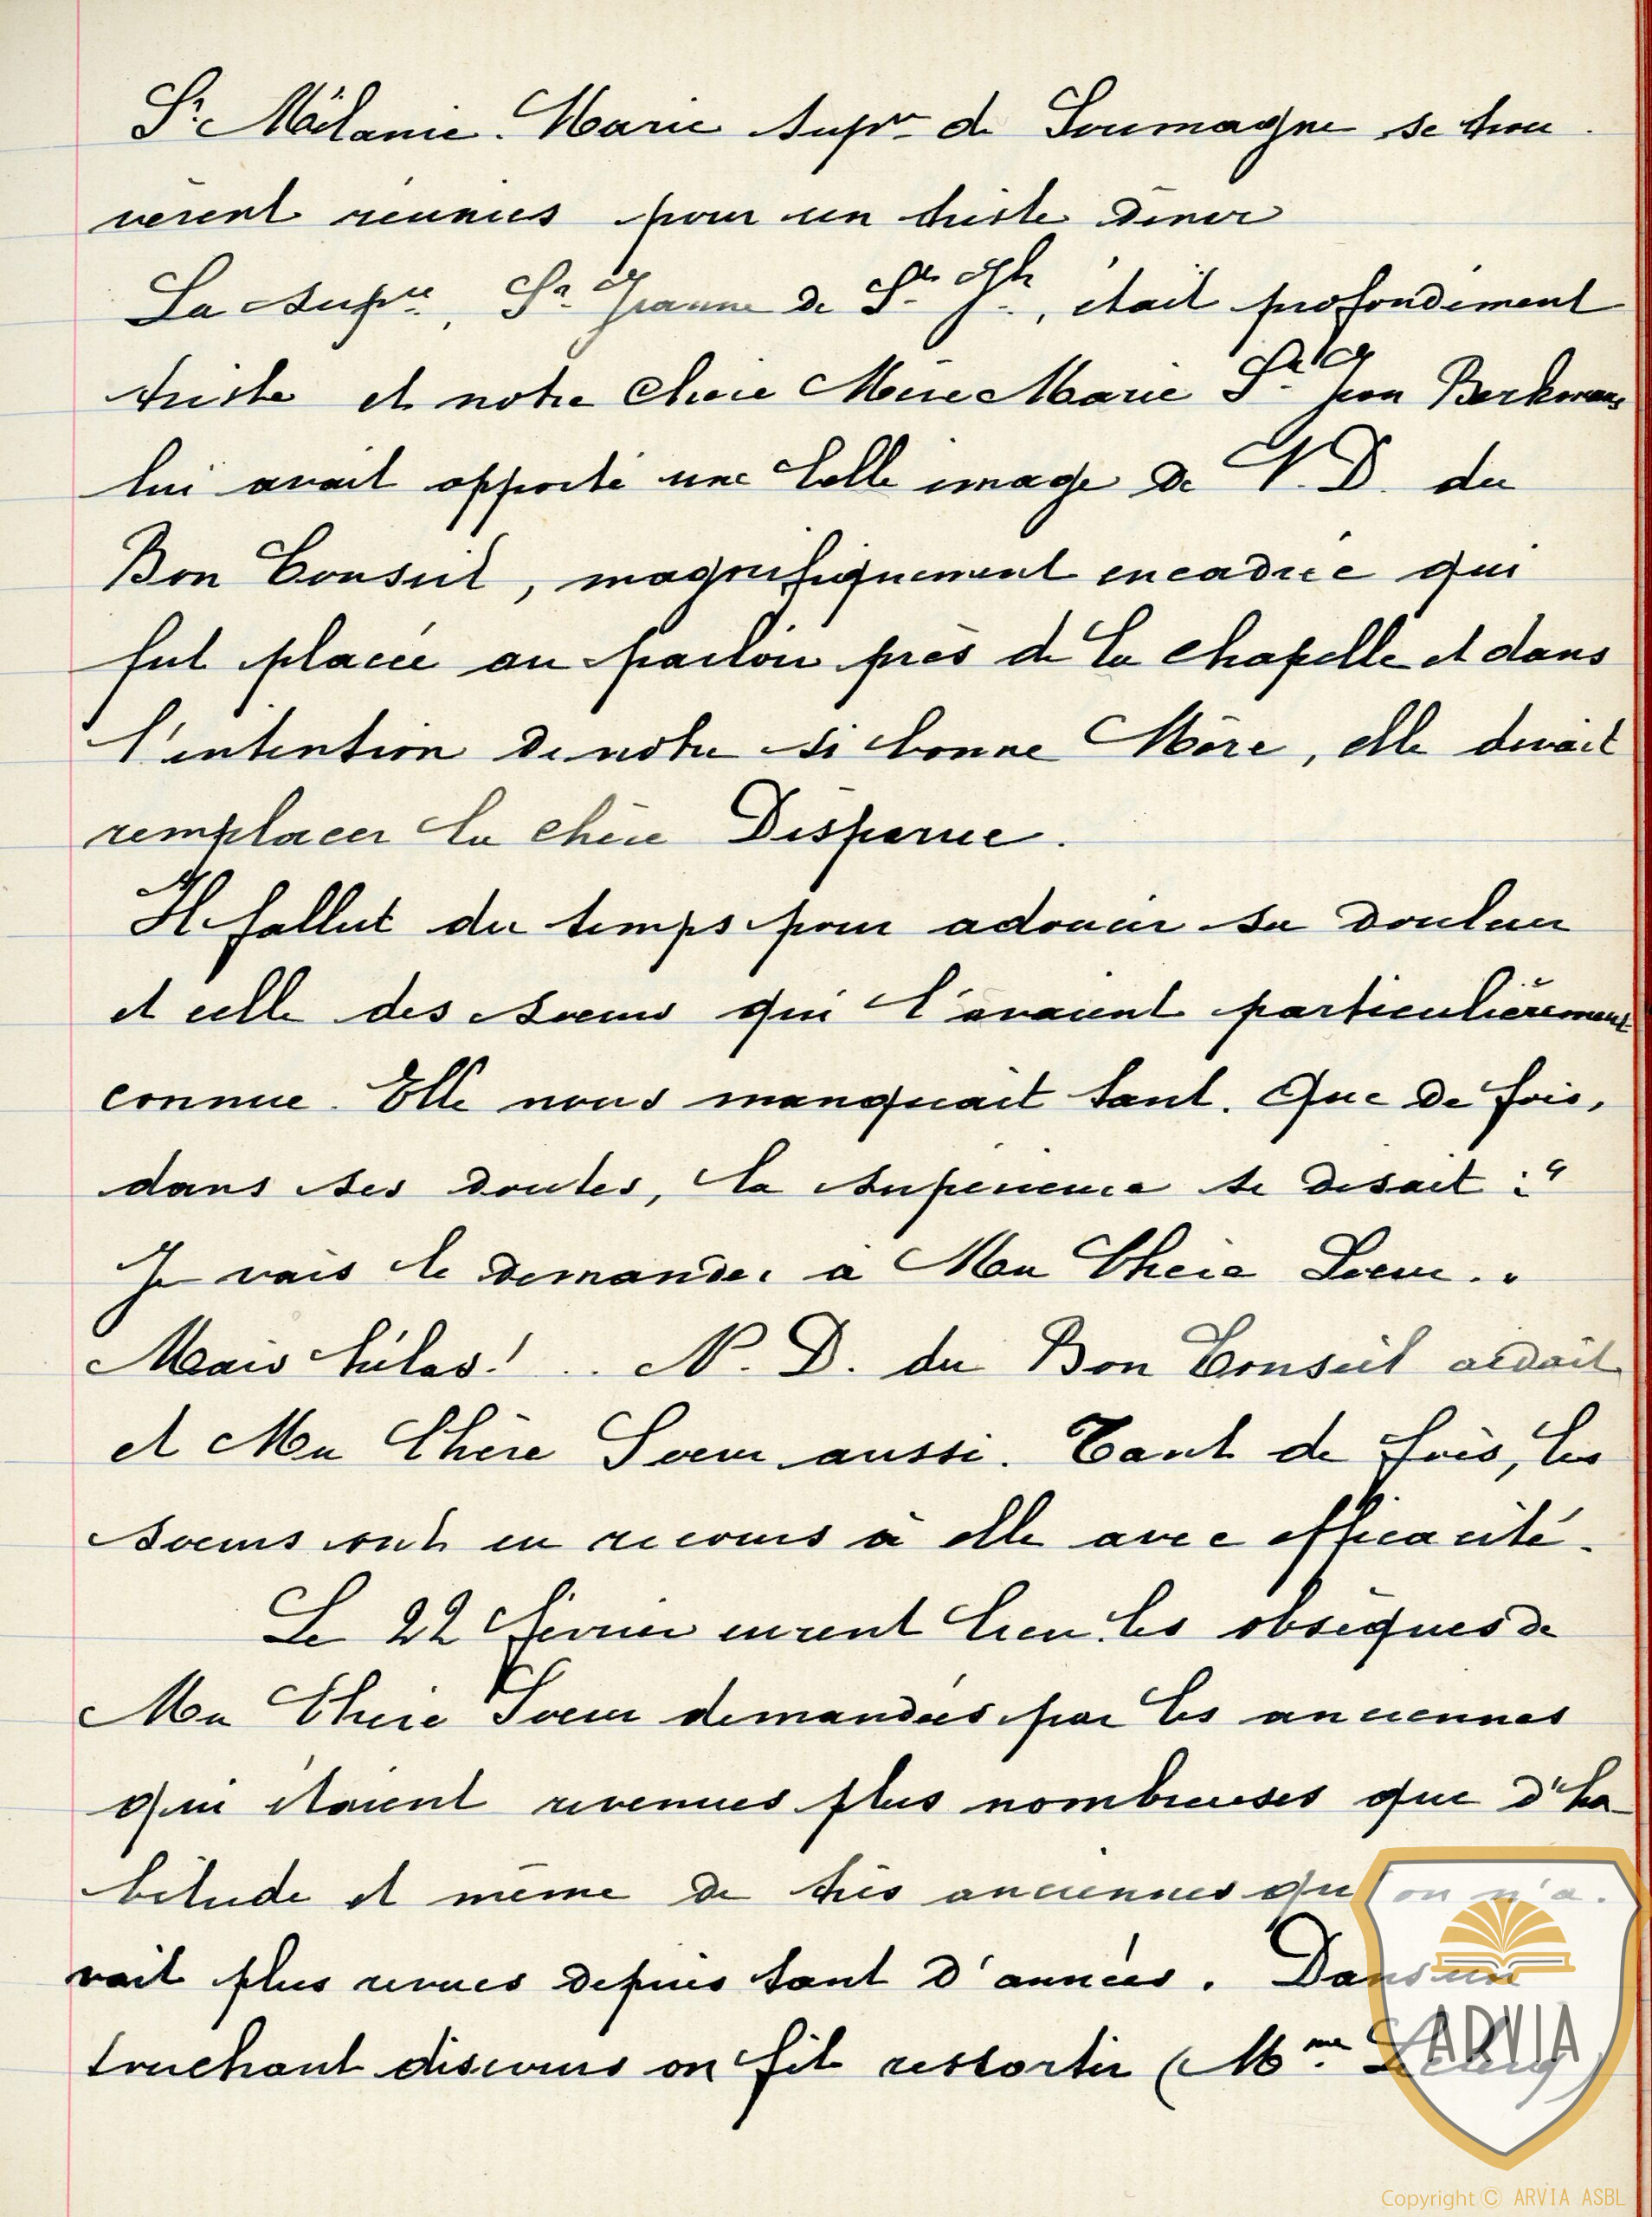 Sr Mélanie-Marie Supre de Soumagne se trou-
vèrent réunies pour un triste dîner
La Supre, Sr Jeanne de St Jh, était profondément
triste et notre Chère Mère Marie St Jean Berkmans
lui avait apporté une belle image de N. D. du
Bon Conseil, magnifiquement encadrée qui
fut placée au parloir près de la chapelle et dans
l'intention de notre si bonne Mère, elle devait
remplacer la chère Disparue.
Il fallut du temps pour adoucir sa douleur
et celle des soeurs qui l'avaient particulièrement
connue. Elle nous manquait tant. Que de fois,
dans ses doutes, la supérieure se disait : "
Je vais le demander à Ma Chère Soeur.."
Mais hélas! .. N. D. du Bon Conseil aidait
et Ma Chère Soeur aussi. Tant de fois, les
soeurs ont eu recours à elle avec efficacité.
Le 22 février eurent lieu les obsèques de
Ma Chère Soeur demandées par les anciennes
qui étaient revenues plus nombreuses que d'ha-
bitude et même de très anciennes qu'on n'a-
vait plus revues depuis tant d'années. Dans un
touchant discours on fit ressortir (Mme
ARVIA
Copyright © ARVIA ASBL